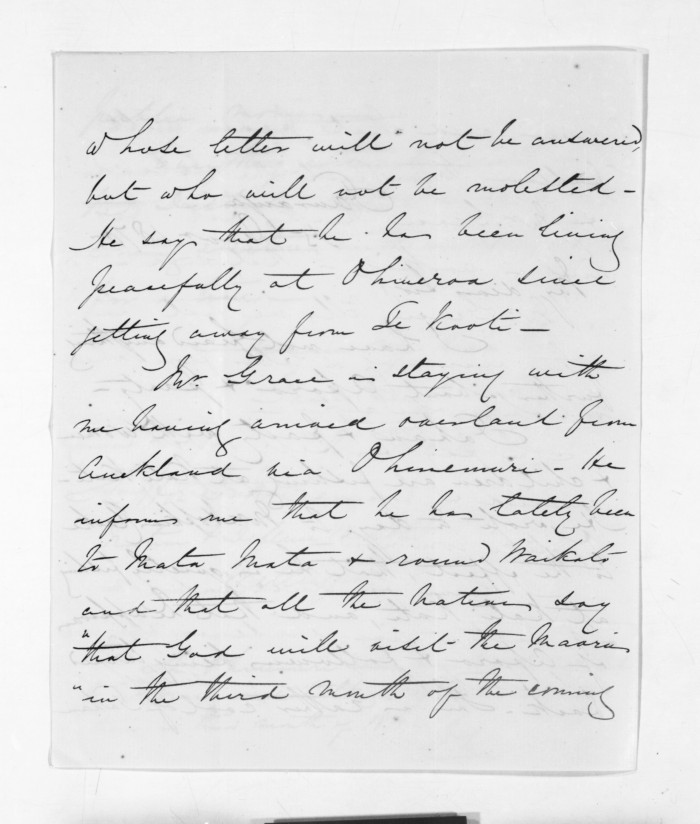 whose letter will not be answered,
but who will not be molested -
He says that he has been living
peacefully at Ohineroa since
getting away from Te Kooti -
Mr. Grace is staying with
me having arrived overland from
Auckland via Ohinemuri - He
informs me that he has lately been
to Mata Mata & round Waikato
and that all the Natives say
"that God will visit the Maories
"in the third month of the coming